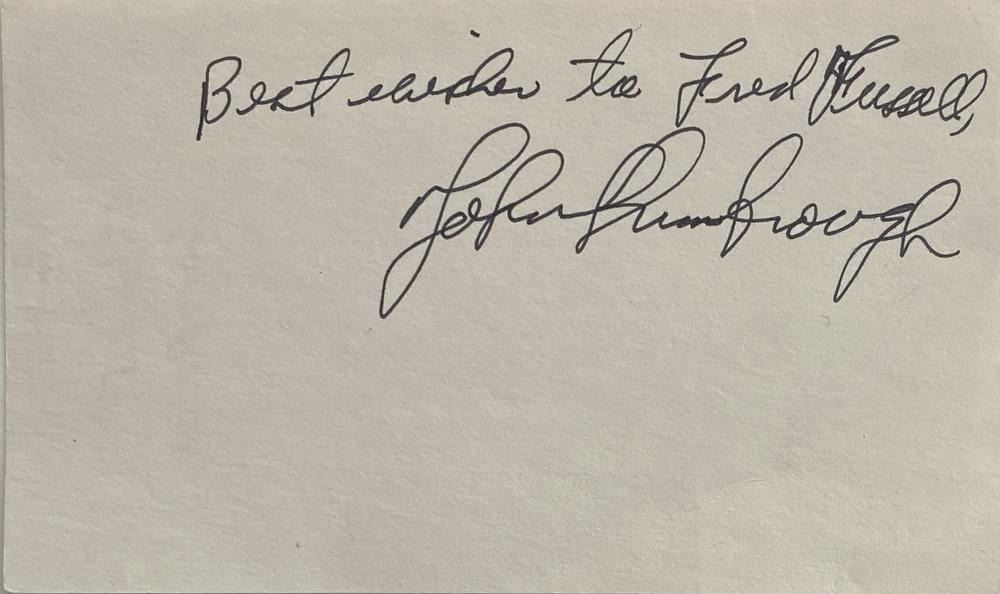 Best wishes to Fred Fussell,
John Kimbrough